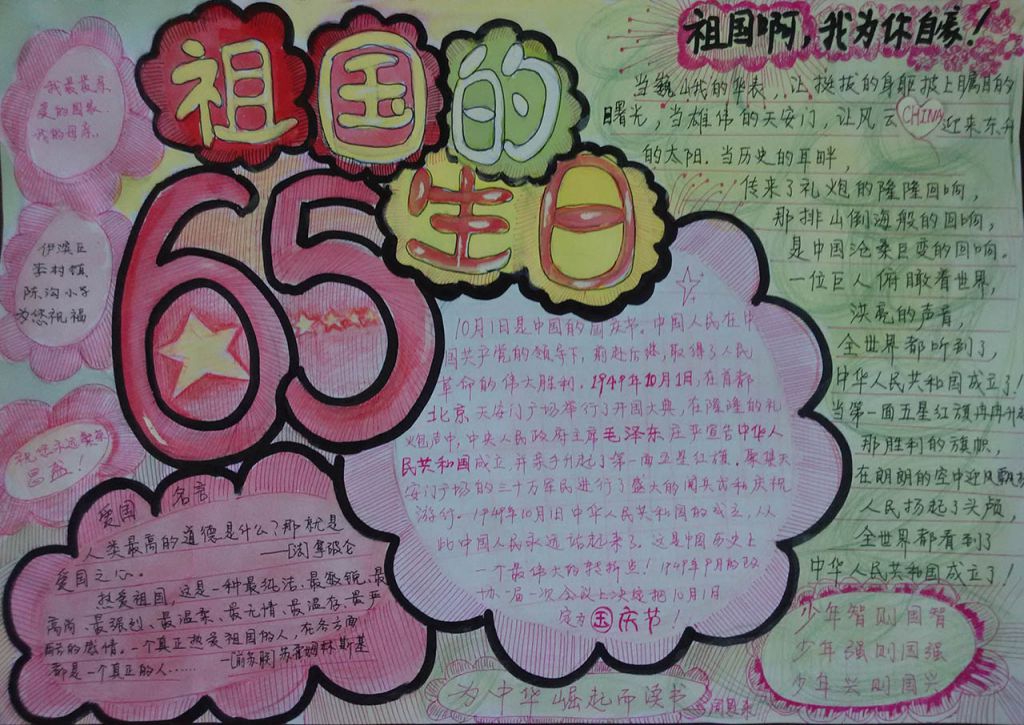 祖国的
65
生日
祖国啊，我为你自豪！
当巍巍的华表，让挺拔的身躯披上瞩目的
曙光，当雄伟的天安门，让风云
CHINA
迎来东升
的太阳.当历史的耳畔，
传来了礼炮的隆隆回响，
那排山倒海般的回响，
是中国沧桑巨变的回响.
一位巨人俯瞰着世界，
洪亮的声音，
全世界都听到了，
中华人民共和国成立了！
当第一面五星红旗冉冉升
那胜利的旗帜，
在朗朗的空中迎风飘扬
人民扬起了头颅，
全世界都看到了
中华人民共和国成立了！
我最最亲
爱的国家
我的母亲.
伊滨区
李村镇
陈沟小学
为您祝福
祝您永远繁荣
昌盛！
10月1日是中国的国庆节。中国人民在中
国共产党的领导下，前赴后继，取得了人民
革命的伟大胜利.1949年10月1日，在首都
北京天安门广场举行了开国大典，在隆隆的礼
炮声中，中央人民政府主席毛泽东庄严宣告中华人
民共和国成立，并亲手升起了第一面五星红旗。聚集天
安门广场的三十万军民进行了盛大的阅兵式和庆祝
游行。1949年10月1日中华人民共和国的成立，从
此中国人民永远站起来了。这是中国历史上
一个最伟大的转折点！1949年9月的政
协一届一次会议上决定把10月1日
定为国庆节！
爱国 名言
人类最高的道德是什么？那就是
爱国之心。
——[法]拿破仑
热爱祖国，这是一种最纯洁、最敏锐、最
高尚、最强烈、最温柔、最无情、最温存、最严
酷的感情。一个真正热爱祖国的人，在各方面
都是一个真正的人……
——[前苏联]苏霍姆林斯基
为中华崛起而读书
周恩来
少年智则国智
少年强则国强
少年兴则国兴